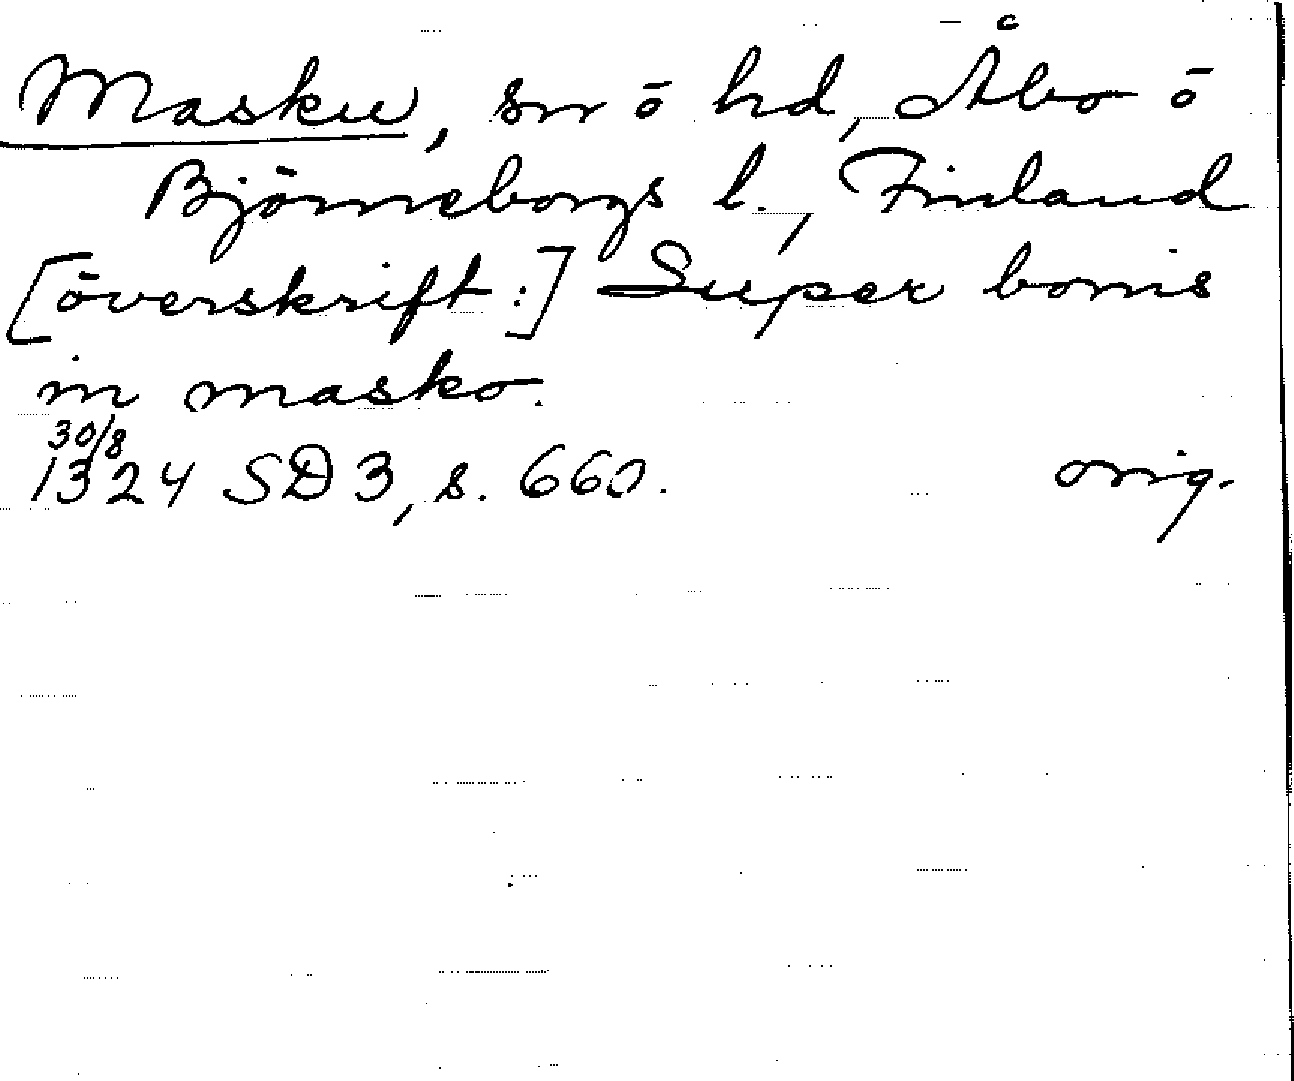 Masku, sn ō hd, Åbo ō
Björneborgs l., Finland
[överskrift:] Super bonis
in masko.
30/8
1324 SD 3, s. 660. orig.